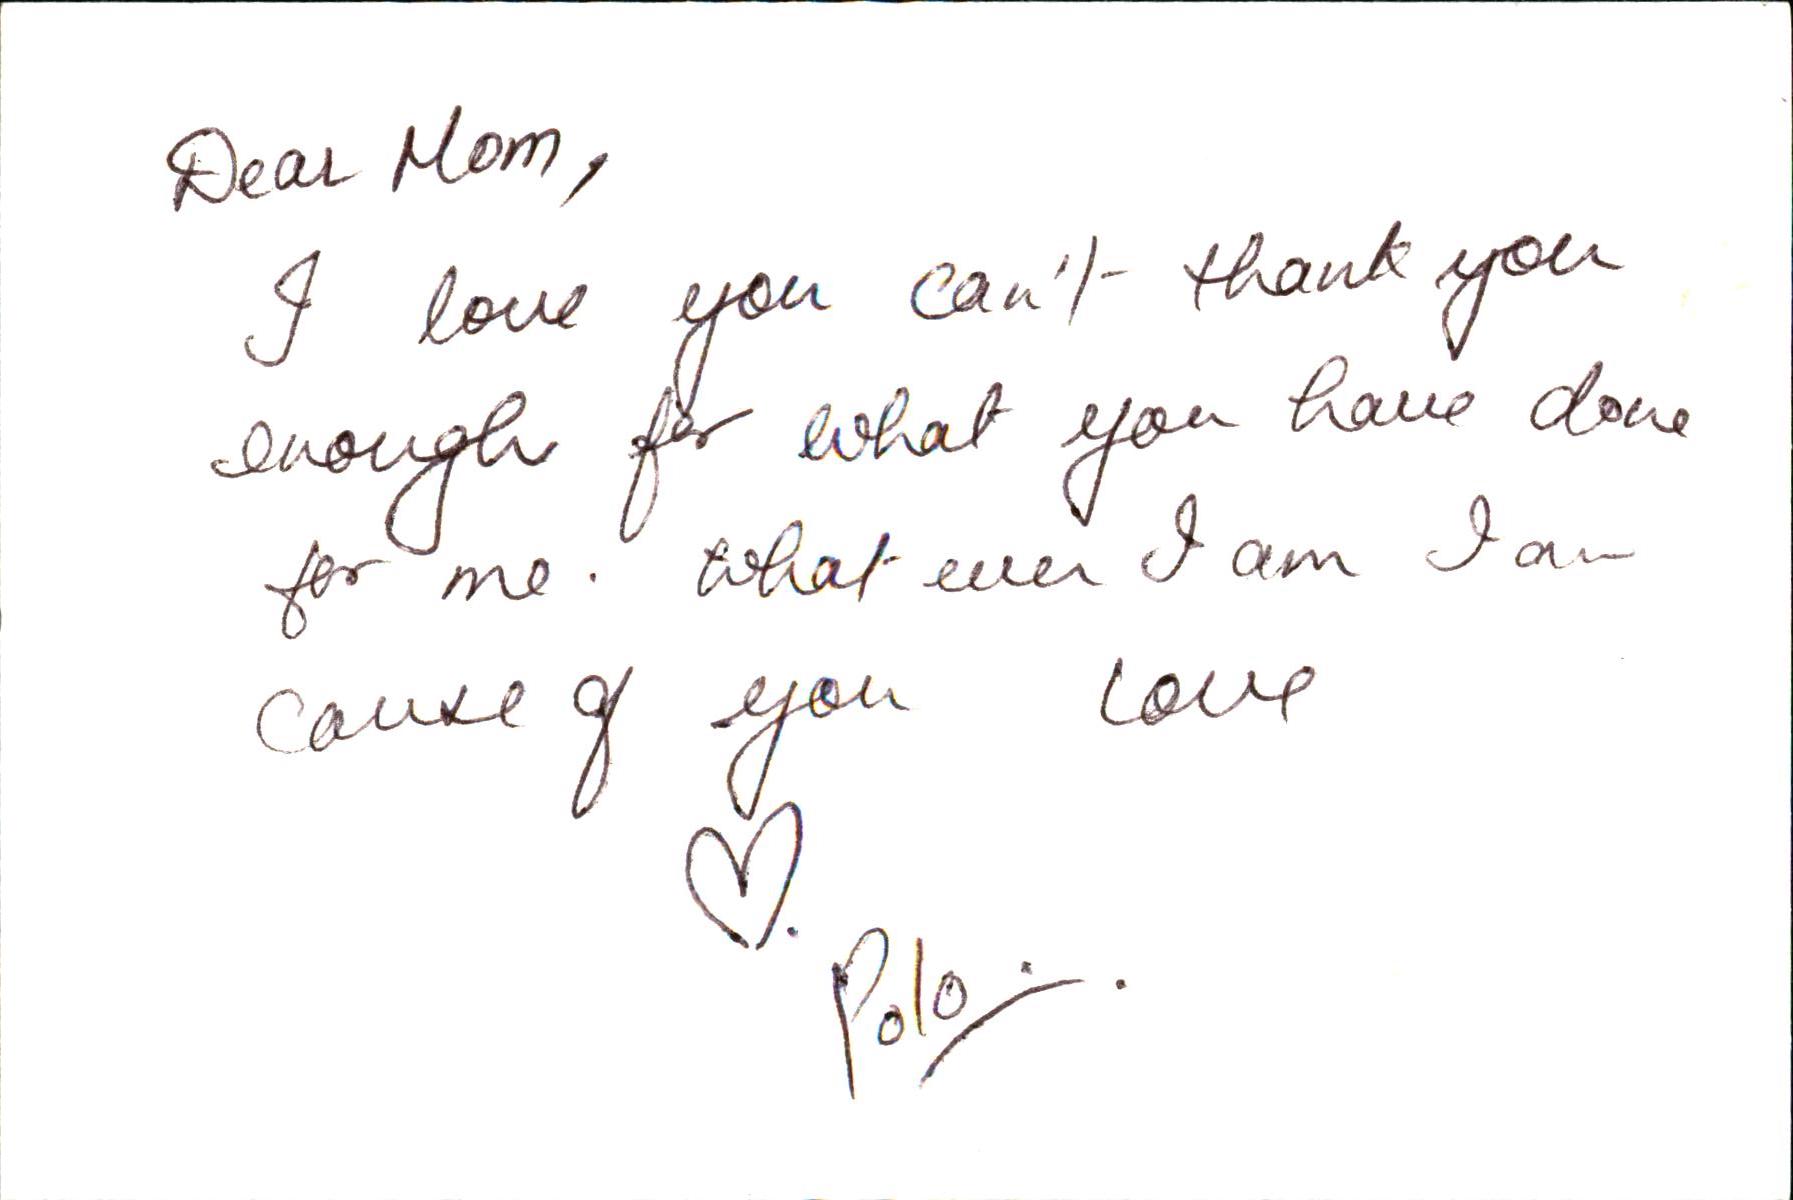 Dear Mom,
I love you can't thank you
enough for what you have done
for me. What ever I am I am
cause of you love
♡.
Polo